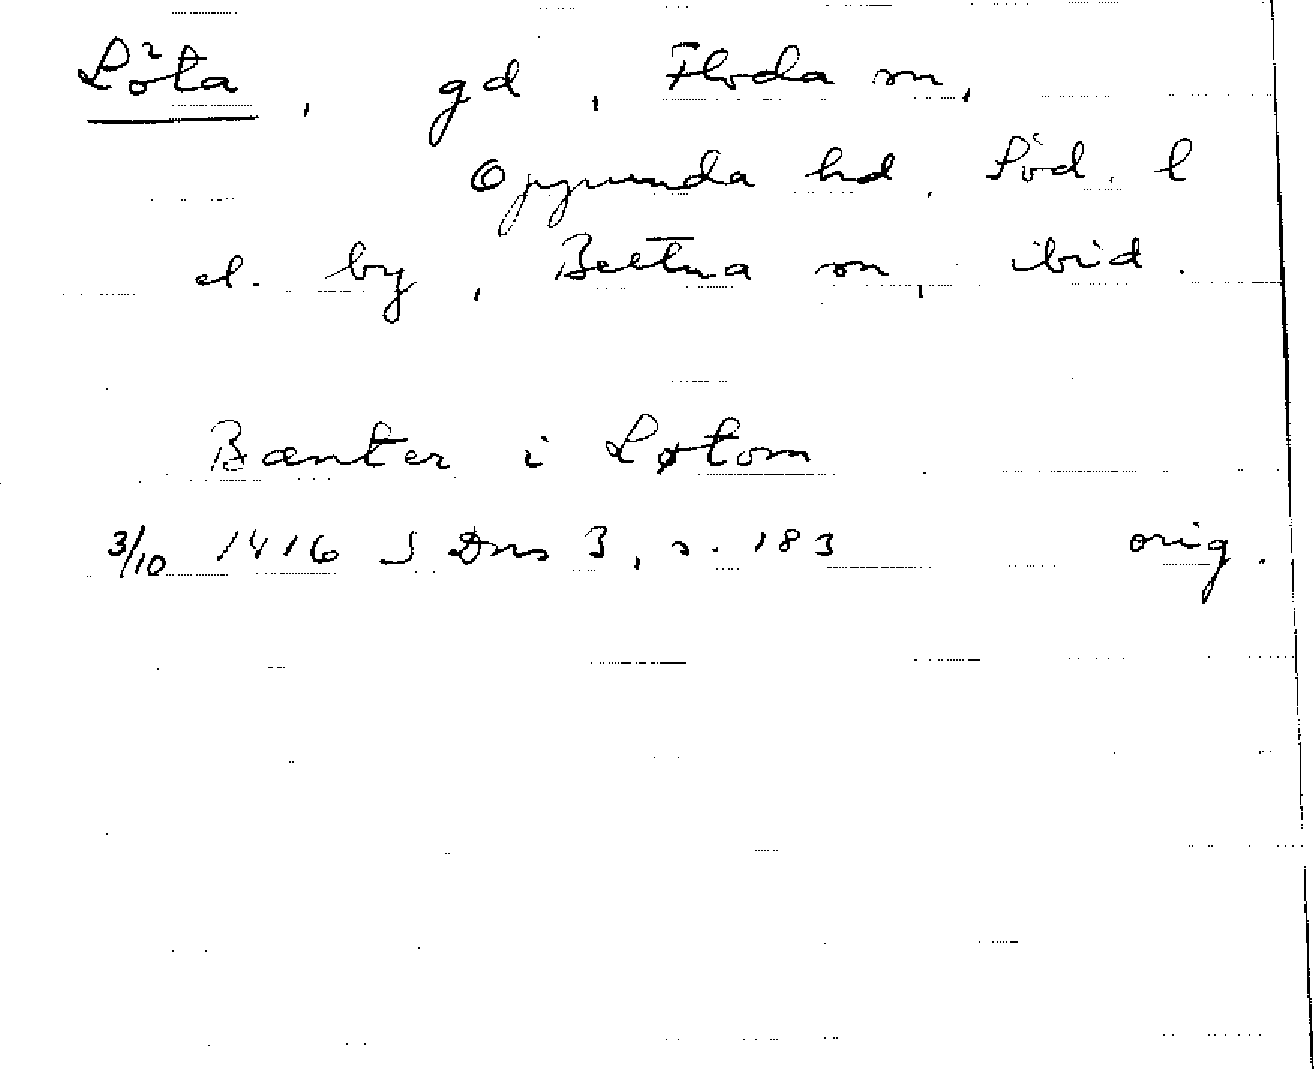 Löta, gd, Floda sn,
Oppunda hd. Söd. l
el. by, Bettna sn, ibid.
Bænter i Løtom
3/10 1416 S Dns 3, s. 183 orig.